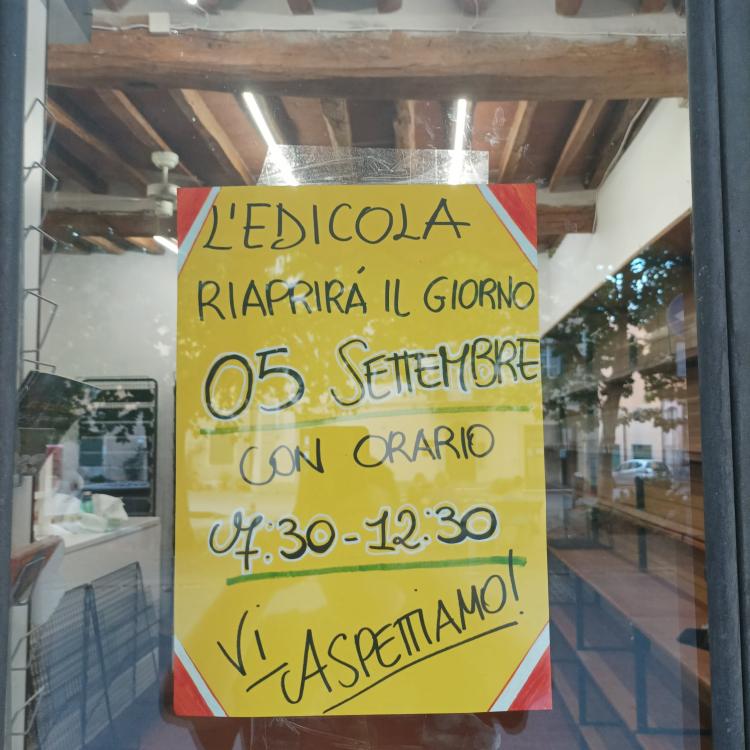 L'EDICOLA
RIAPRIRÁ IL GIORNO
05 SETTEMBRE
CON ORARIO
07:30-12:30
VI ASPETTIAMO!